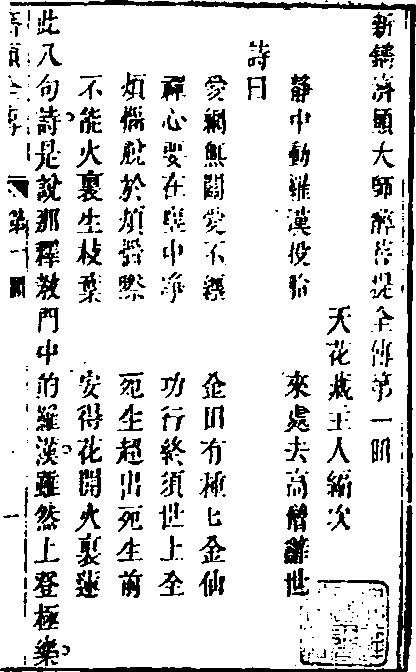 新鐫濟顛大師醉菩提全傳第一回
天花藏主人編次
靜中動羅漢投胎　來處去高僧辭世
詩曰
愛網無關愛不纏　金田有種七金仙
禪心要在塵中淨　功行終須世上全
煩惱脫於煩惱際　死生超出死生前
不能火裏生枝葉　安得花開火裏蓮
此八句詩是說那釋教門中的羅漢雖然上登極樂
濟顛全傳　第一回　一